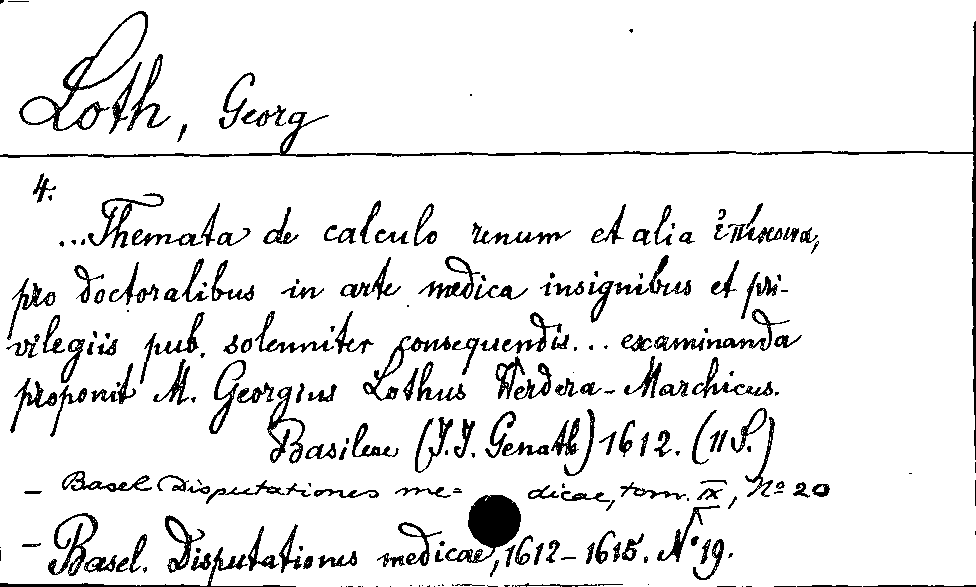 Loth, Georg
4.
...Themata de calculo renum et alia
pro doctoralibus in arte medica insignibus et pri-
vilegiis pub. solenniter consequendis... examinanda
proponit M. Georgius Lothus Werdera-Marchicus.
Basileae (J.J. Genath) 1612. (11 S.)
- Basel Disputationes me= dicae, tom. IX, No 20
- Basel. Disputationes medicae, 1612-1615. No 19.